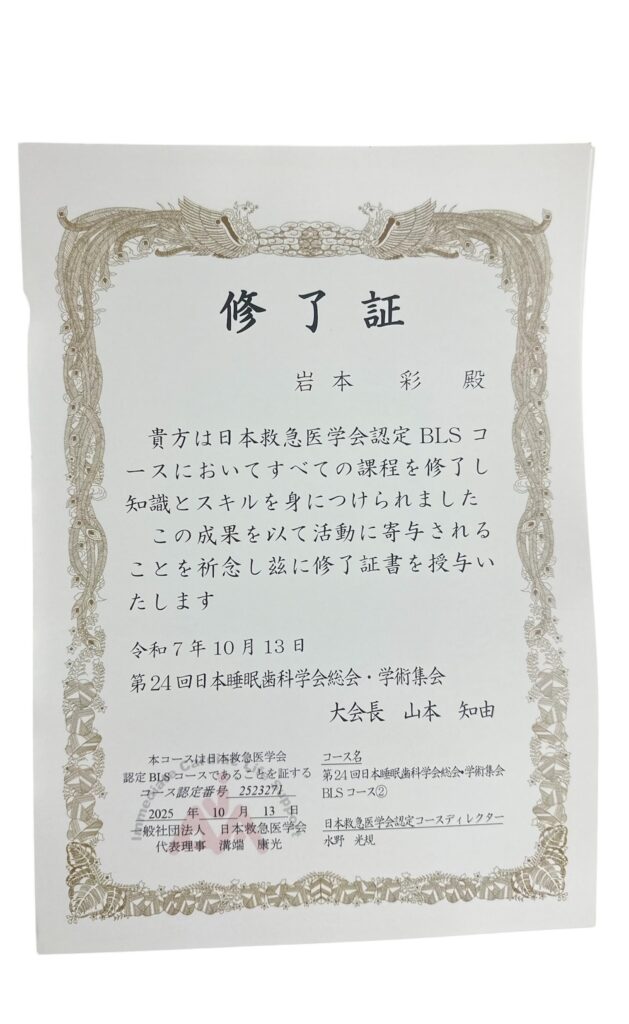 修了証
岩本 彩 殿
貴方は日本救急医学会認定 BLS コ
ースにおいてすべての課程を修了し
知識とスキルを身につけられました
この成果を以て活動に寄与される
ことを祈念し茲に修了証書を授与い
たします
令和7年10月13日
第24回日本睡眠歯科学会総会・学術集会
大会長 山本 知由
本コースは日本救急医学会
認定 BLS コースであることを証する
コース認定番号 2523271
2025 年 10 月 13 日
一般社団法人 日本救急医学会
代表理事 溝端 康光
コース名
第24回日本睡眠歯科学会総会・学術集会
BLSコース②
日本救急医学会認定コースディレクター
水野 光規